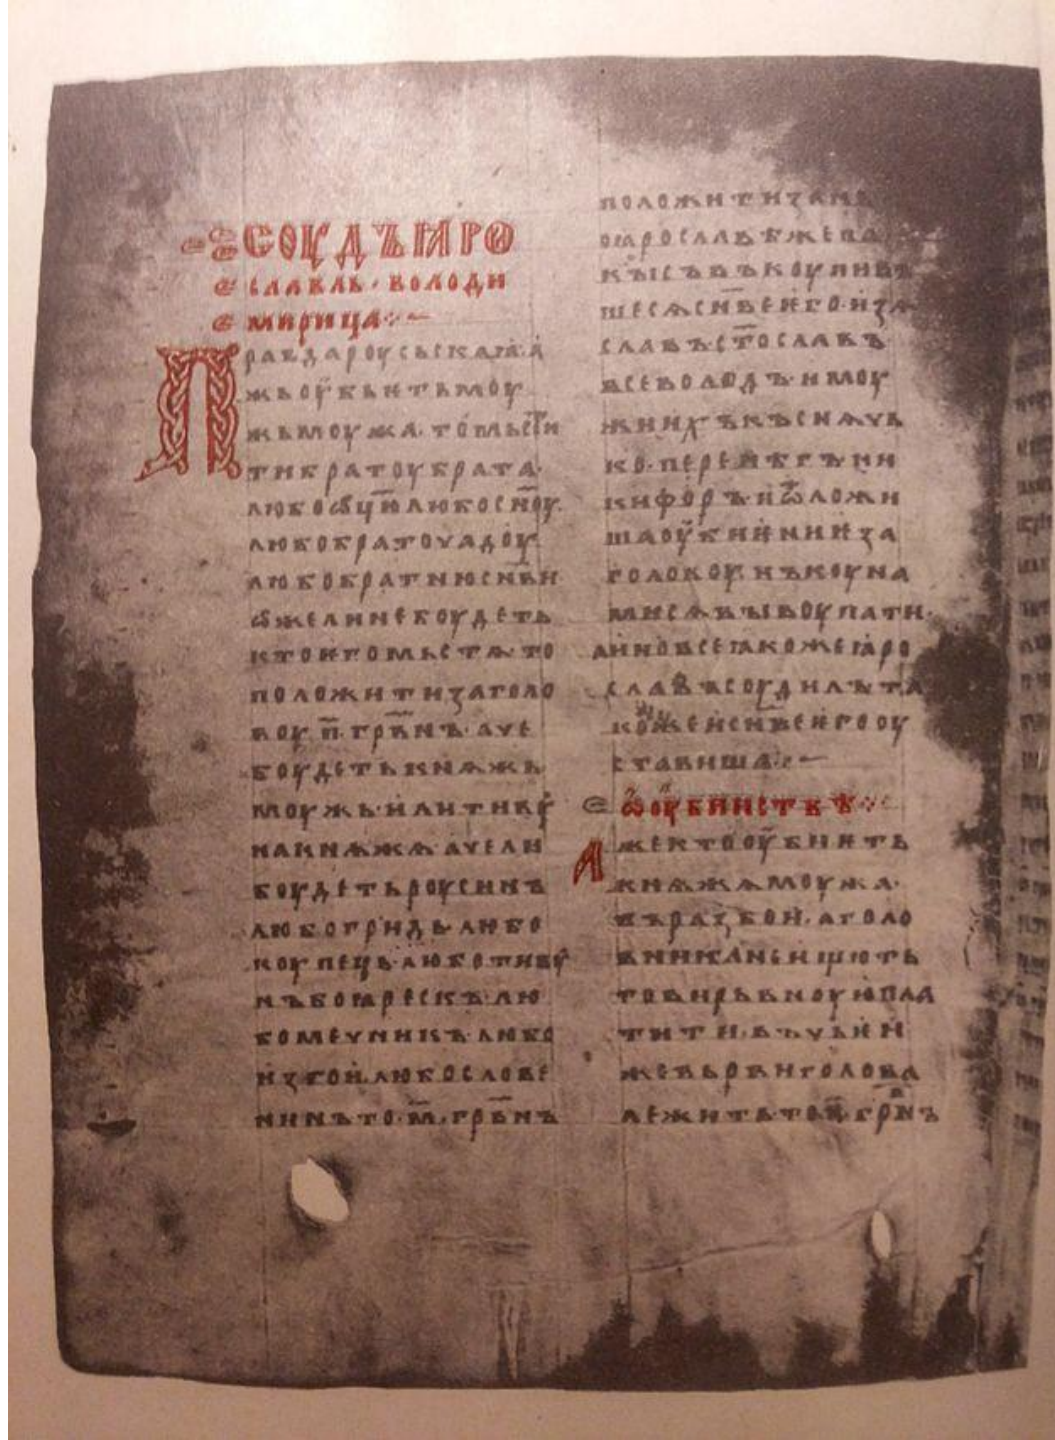 СОУДЪ ꙖРО
СЛАВЛЬ · ВОЛОДИ
МИРИЦА
Правда роусьскаꙗ · А
жь оубьѥть моу
жь моужа · то мьсти
ти братоу брата ·
любо ѿцю любо сн҃оу ·
любо братоучадоу ·
любо братню сн҃ви
ѡже ли не боудеть
кто ѥго мьстѧ · то
положити за голо
воу · п҃ · грв҃нъ · аче
боудеть кнѧжь
моужь · или тивоу
на кнѧжѧ · аче ли
боудеть роусинъ
любо гридь · любо
коупець · любо тивоу
нъ боꙗрескъ · лю
бо мечникъ · любо
изгои · любо слове
нинъ то · м҃ · грв҃нъ
положити за нь
по ꙗрославѣ же
кысъвъкоупивъ
шесѧ сн҃ве ѥго · изѧ
славъ · ст҃ославъ
всеволодъ · и моу
жи ихъ къснѧчь
ко · перенѣгъ ни
кифоръ · и ѿложи
ша оубиѥниѥ за
головоу · нъ коуна
ми сѧ выкоупати ·
а ино все ꙗкоже ꙗро
славъ соудилъ та
коже и сн҃ве ѥго оу
ставиша
Ѡ оубииствѣ
Аже кто оубиѥть
кнѧжѧ моужа ·
въ разбои · а голо
вника не ищють
то вирьвноую пла
тити · въ чьѥи
же вьрви голова
лежить то п҃ · грв҃нъ